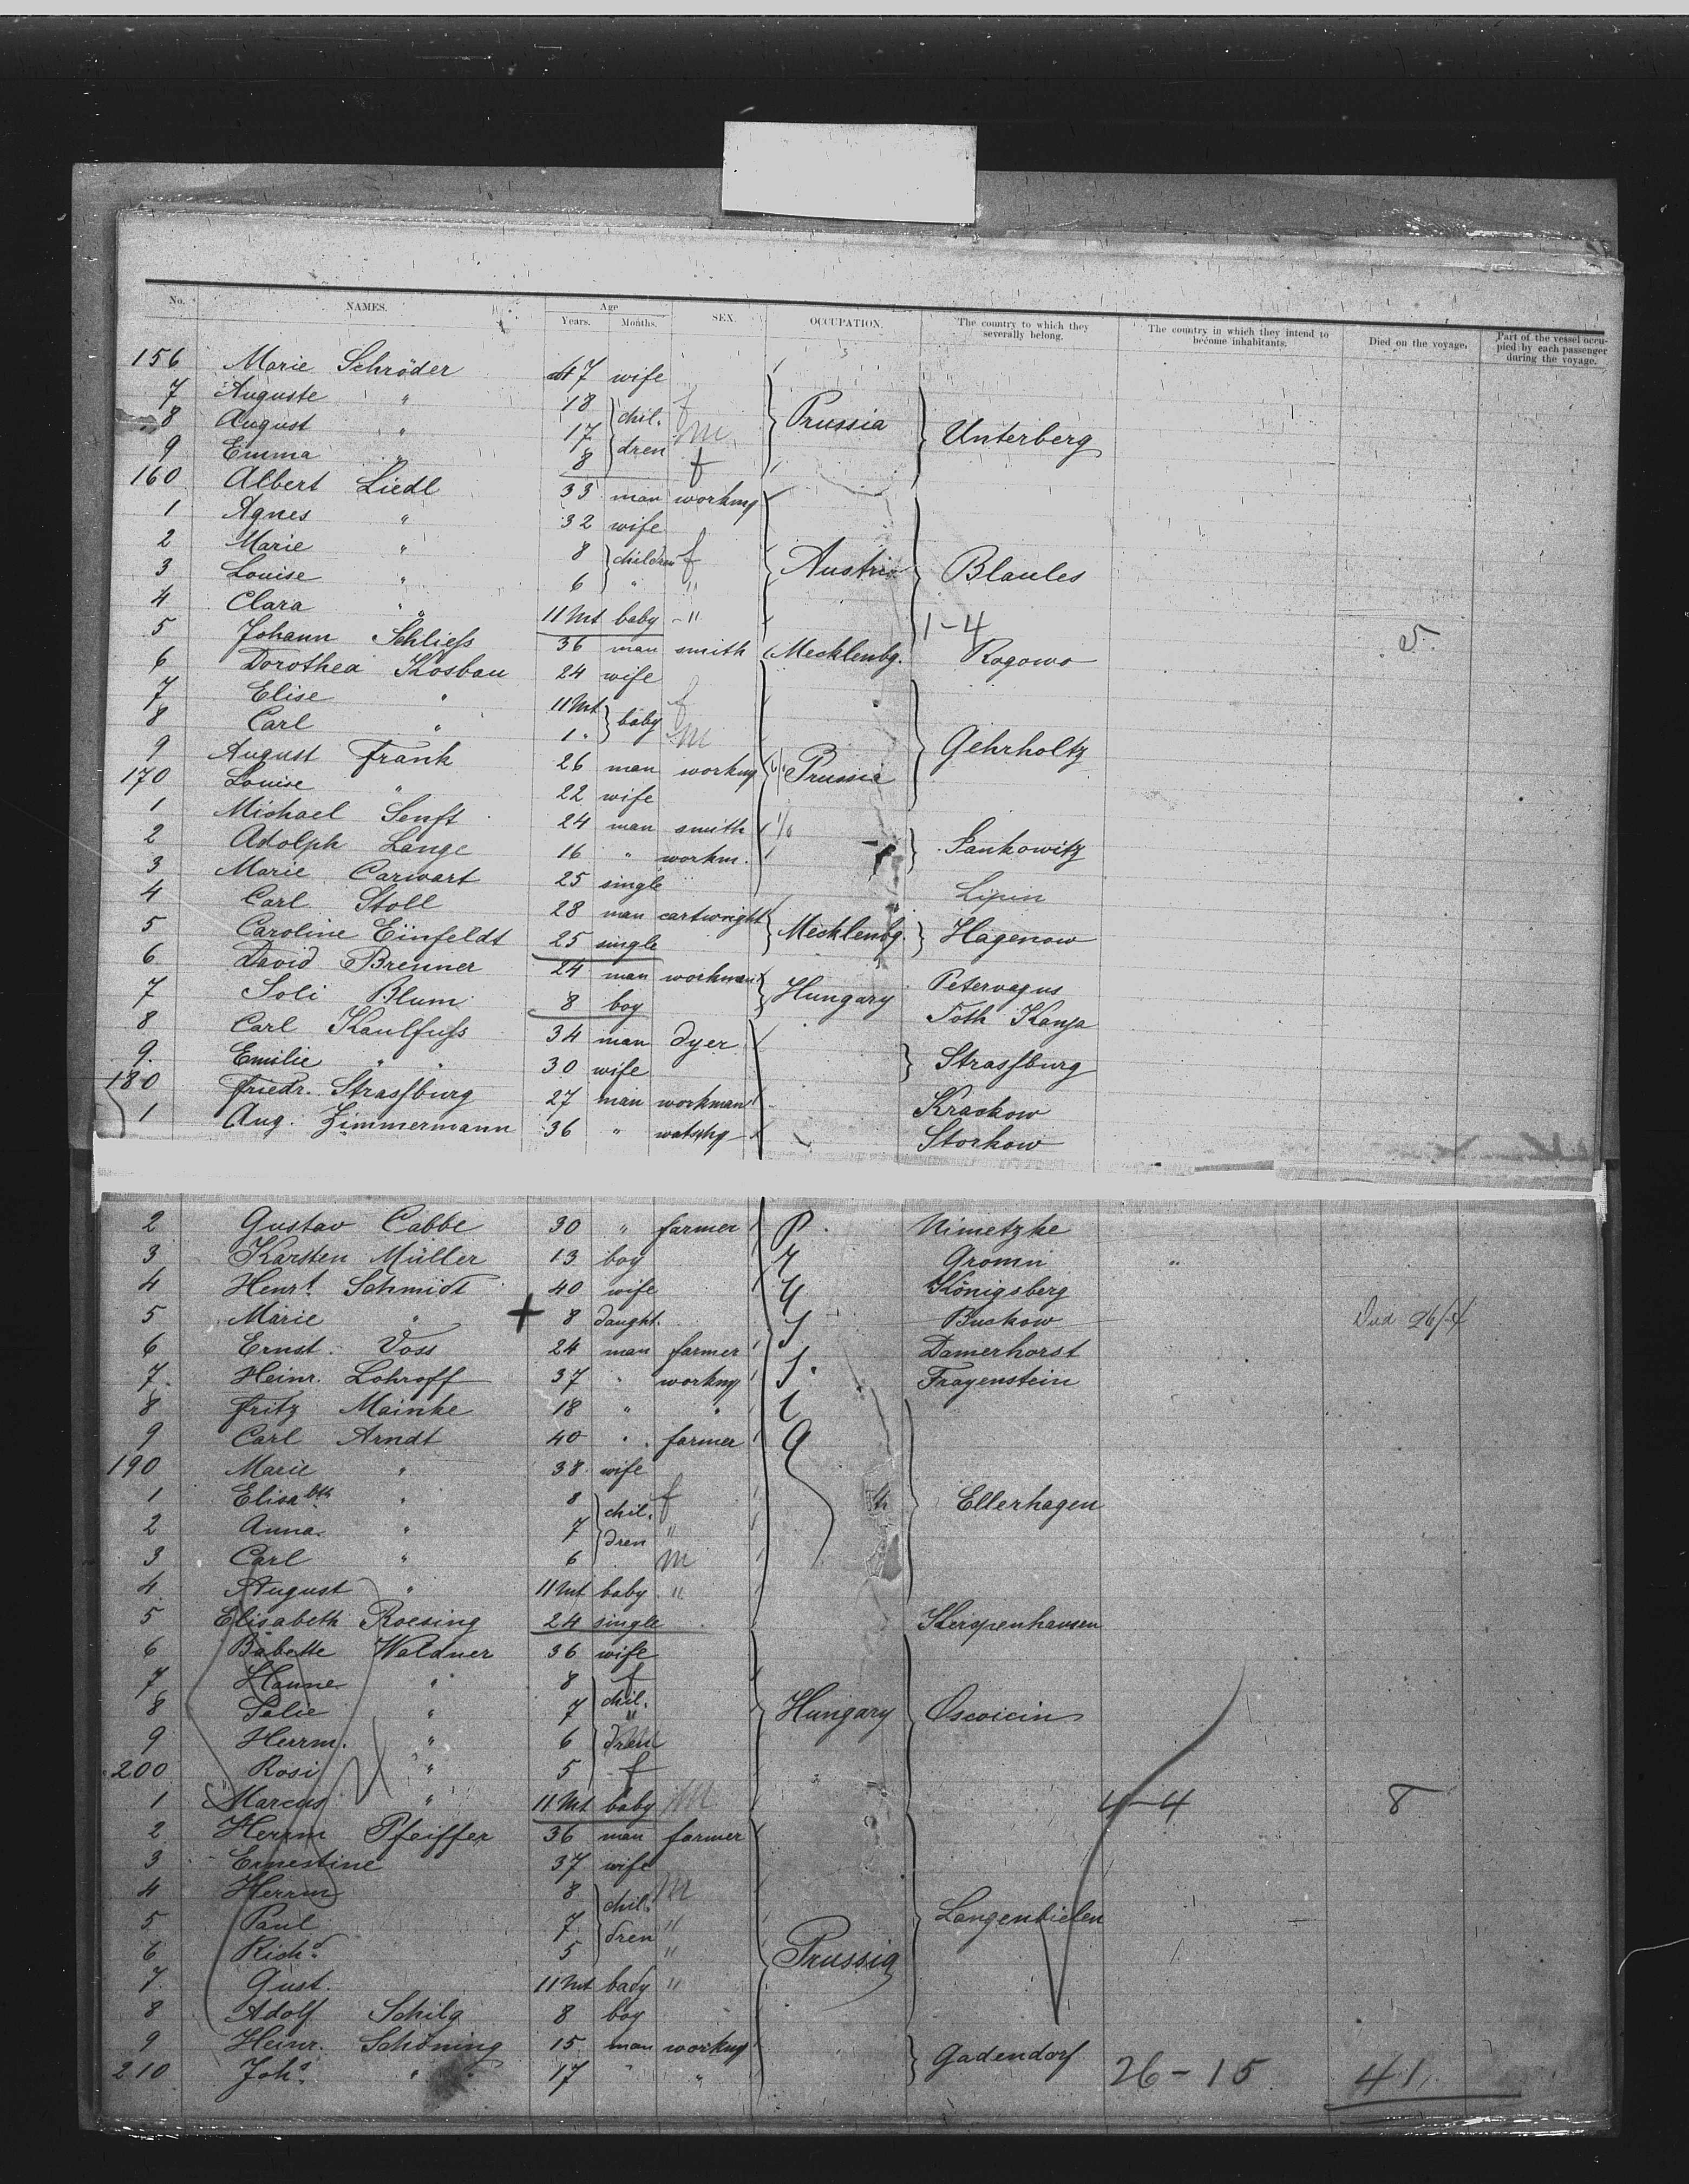 No. NAMES. Age Years. Months. SEX. OCCUPATION. The country to which they severally belong. The country in which they intend to become inhabitants. Died on the voyage. Part of the vessel occupied by each passenger during the voyage.
156 Marie Schröder 47 wife
7 Auguste " 18 chil. f Prussia Unterberg
8 August " 17 m
9 Emma " 8 dren f
160 Albert Liedl 33 man workmg
1 Agnes " 32 wife
2 Marie " 8 children f Austria Blaules
3 Louise " 6 " "
4 Clara " 11 Mt baby " 1-4
5 Johann Schliess 36 man smith Mecklenbg. Rogowo 5
6 Dorothea Kosbau 24 wife
7 Elise " 11 Mt baby f
8 Carl " 1 " m Gehrholtz
9 August Frank 26 man workmg Prussia
170 Louise " 22 wife
1 Michael Senft 24 man smith
2 Adolph Lange 16 " workm. Sankowitz
3 Marie Carwart 25 single Lipin
4 Carl Stoll 28 man cartwright Mecklenbg. Hagenow
5 Caroline Einfeldt 25 single
6 David Brenner 24 man workman Hungary Petervagus
7 Soli Blum 8 boy Toth Kanja
8 Carl Kaulfuss 34 man dyer Strassburg
9. Emilie " 30 wife
180 Friedr. Strassburg 27 man workman Krackow
1 Aug. Zimmermann 36 " Storkow
2 Gustav Cabbe 30 " farmer P. Nimetzke
3 Karsten Müller 13 boy Gromn "
4 Henrt. Schmidt 40 wife Königsberg
5 Marie " + 8 daught. Buckow Died 26/4
6 Ernst. Voss 24 man farmer Damerhorst
7 Heinr. Lohroff 37 " workmg Frayenstein
8 Fritz Mainke 18 " "
9 Carl Arndt 40 " farmer
190 Marie " 38 wife
1 Elisabth " 8 chil. f Ellerhagen
2 Anna " 7 dren "
3 Carl " 6 m
4 August " 11 Mt baby "
5 Elisabeth Roesing 24 single Kerspenhausen
6 Babette Waldner 36 wife
7 Hanne " 8 f
8 Salie " 7 chil. " Hungary Oscoicin
9 Herrm. " 6 dren m
200 Rosi " 5 f
1 Marcus " 11 Mt baby m 4-4 8
2 Herrm Pfeiffer 36 man farmer
3 Ernestine 37 wife
4 Herrm 8 chil. m
5 Paul 7 dren " Langenbielen
6 Richd. 5 " Prussia
7 Gust. 11 Mt baby "
8 Adolf Schilg 8 boy
9 Heinr. Schöning 15 man workmg Gadendorf
210 Johs. " 17 " " 26-15 41